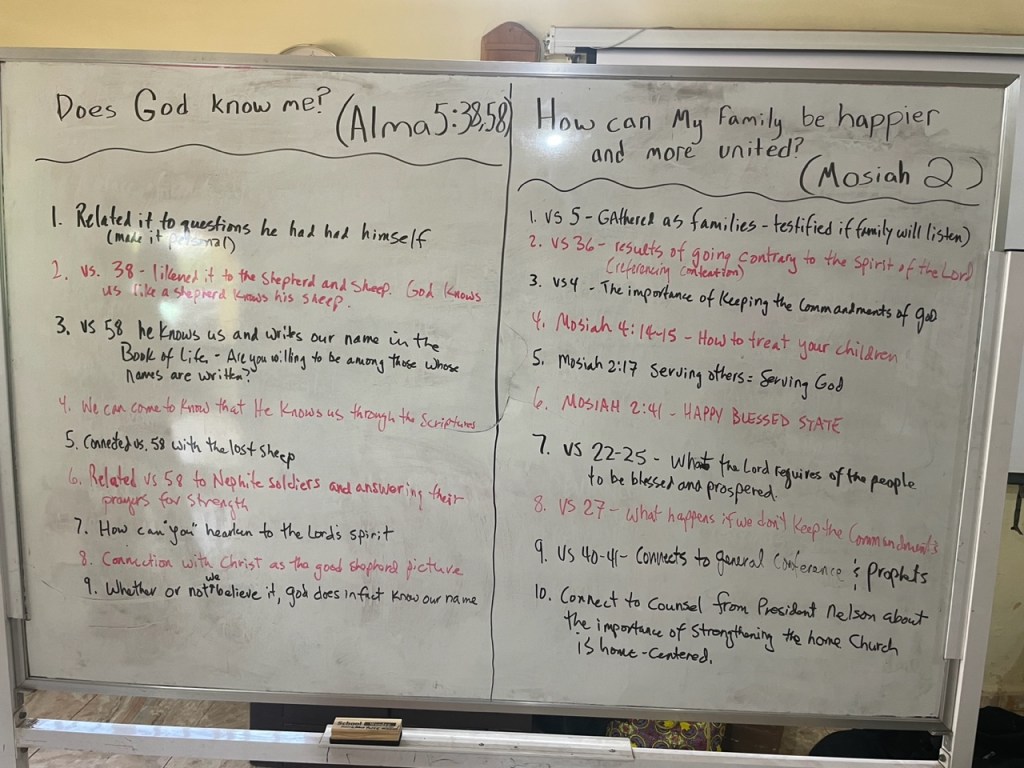 Does God know me?
(Alma 5:38,58)
1. Related it to questions he had had himself
(make it personal)
2. vs. 38 - likened it to the shepherd and sheep. God knows
us like a shepherd knows his sheep.
3. vs 58 he knows us and writes our name in the
Book of Life. - Are you willing to be among those whose
names are written?
4. We can come to know that He knows us through the Scriptures
5. Connected vs. 58 with the lost sheep
6. Related vs 58 to Nephite soldiers and answering their
prayers for strength
7. How can "you" hearken to the Lord's spirit
8. Connection with Christ as the good shepherd picture
9. Whether or not we believe it, god does in fact know our name
How can My family be happier
and more united?
(Mosiah 2)
1. vs 5 - GAthered as families - testified if family will listen)
2. vs 36 - results of going contrary to the spirit of the Lord
(referencing contention)
3. vs 4 - The importance of keeping the commandments of god
4. Mosiah 4:14-15 - How to treat your children
5. Mosiah 2:17 Serving others = Serving God
6. MOSIAH 2:41 - HAPPY BLESSED STATE
7. vs 22-25 - What the Lord requires of the people
to be blessed and prospered.
8. vs 27 - what happens if we don't keep the Commandments
9. vs 40-41 - Connects to general conference & prophets
10. Connect to Counsel from President Nelson about
the importance of strengthening the home Church
is home-centered.
School